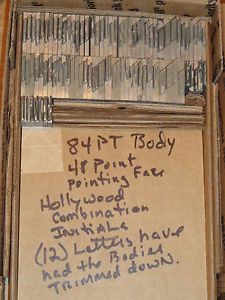 84 PT Body
48 Point
Pointing Face
Hollywood
Combination
Initials
(12) Letters have
had the Bodies
Trimmed down.